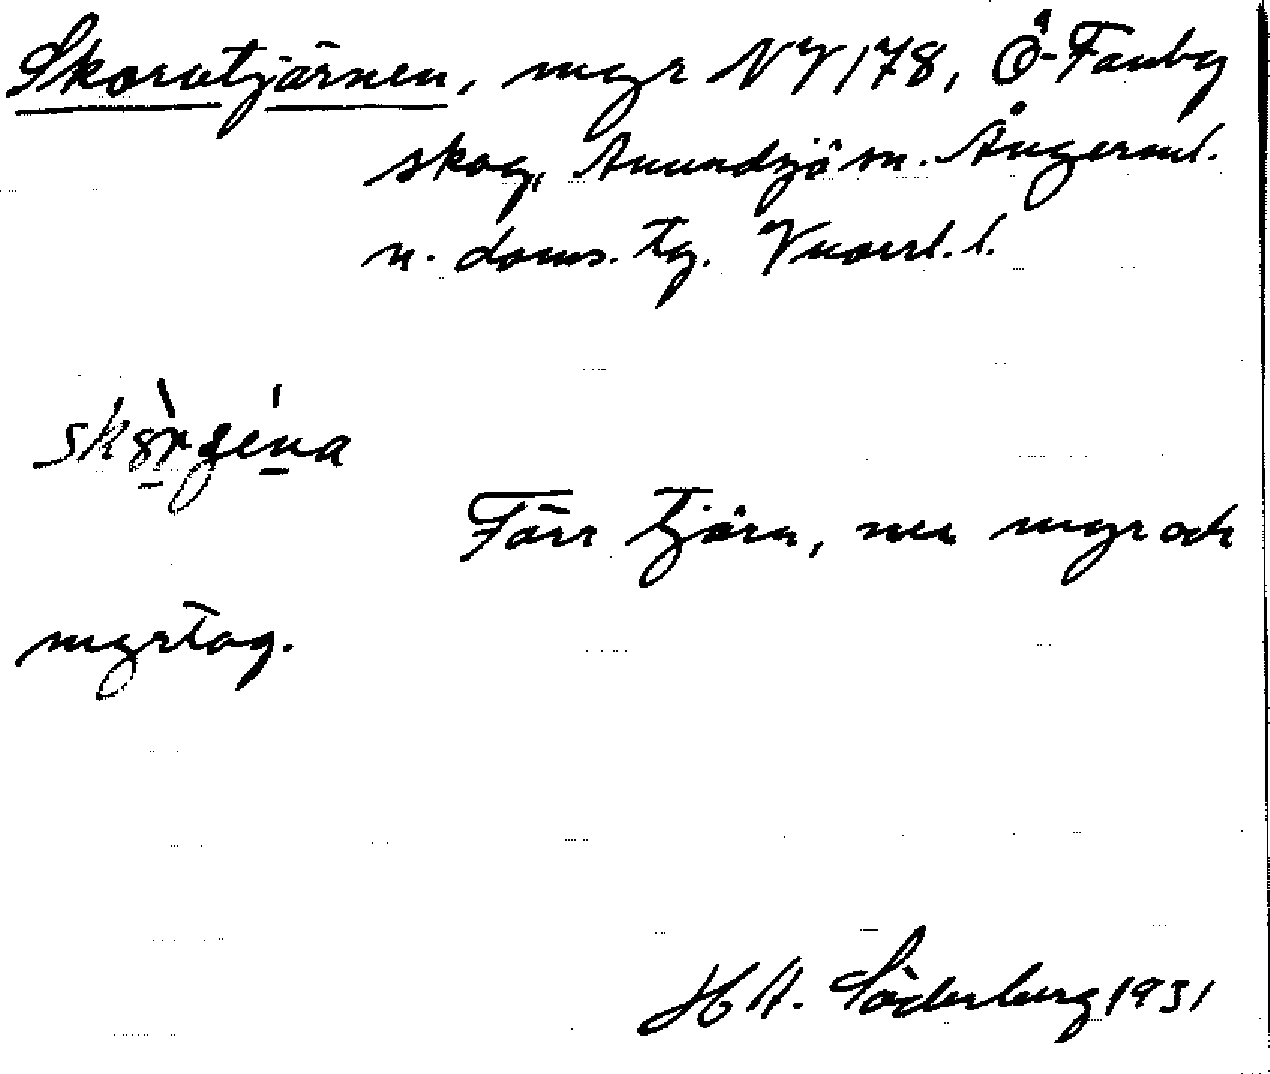 Skorvtjärnen, myr NV 178, Ö-Tanby
skog, Anundsjö sn. Ångerml.
n. doms. tg. Vnorrl. l.
Förr tjärn, nu myr och
myrtag.
H A. Söderberg 1931